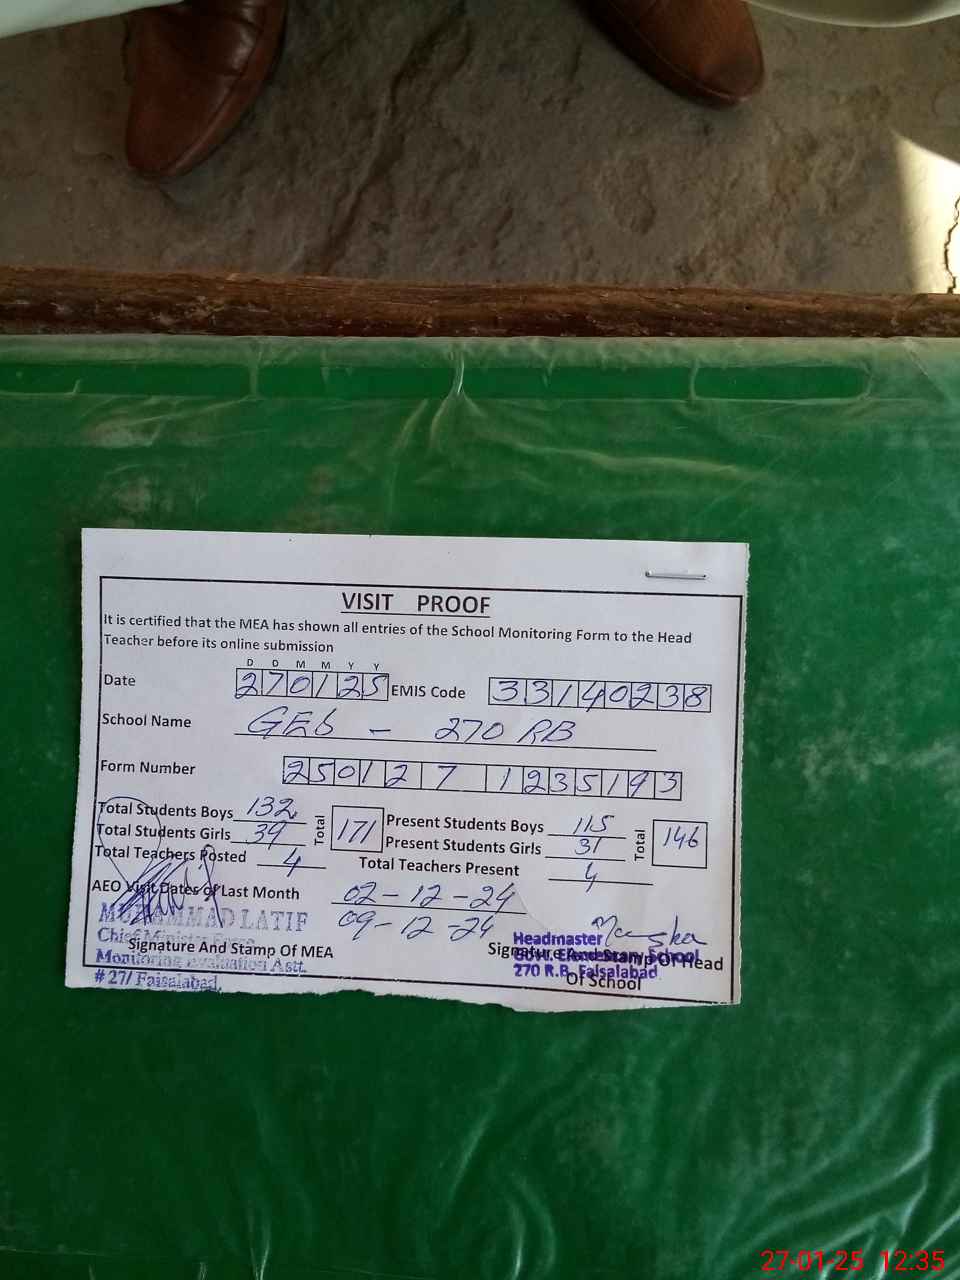 VISIT PROOF
It is certified that the MEA has shown all entries of the School Monitoring Form to the Head
Teacher before its online submission
D D M M Y Y
Date 270125 EMIS Code 33140238
School Name GES - 270 RB
Form Number 250127 1235193
Total Students Boys 132 Total 171 Present Students Boys 115 Total 146
Total Students Girls 39 Present Students Girls 31
Total Teachers Posted 4 Total Teachers Present 4
AEO Visit Dates of Last Month 02-12-24
09-12-24
MUHAMMAD LATIF
Chief Minister
Signature And Stamp Of MEA
Monitoring Evaluation Astt.
# 27/ Faisalabad.
Headmaster
Signature And Stamp Of Head
Govt. Elementary School
270 R.B. Faisalabad
Of School
27-01-25 12:35